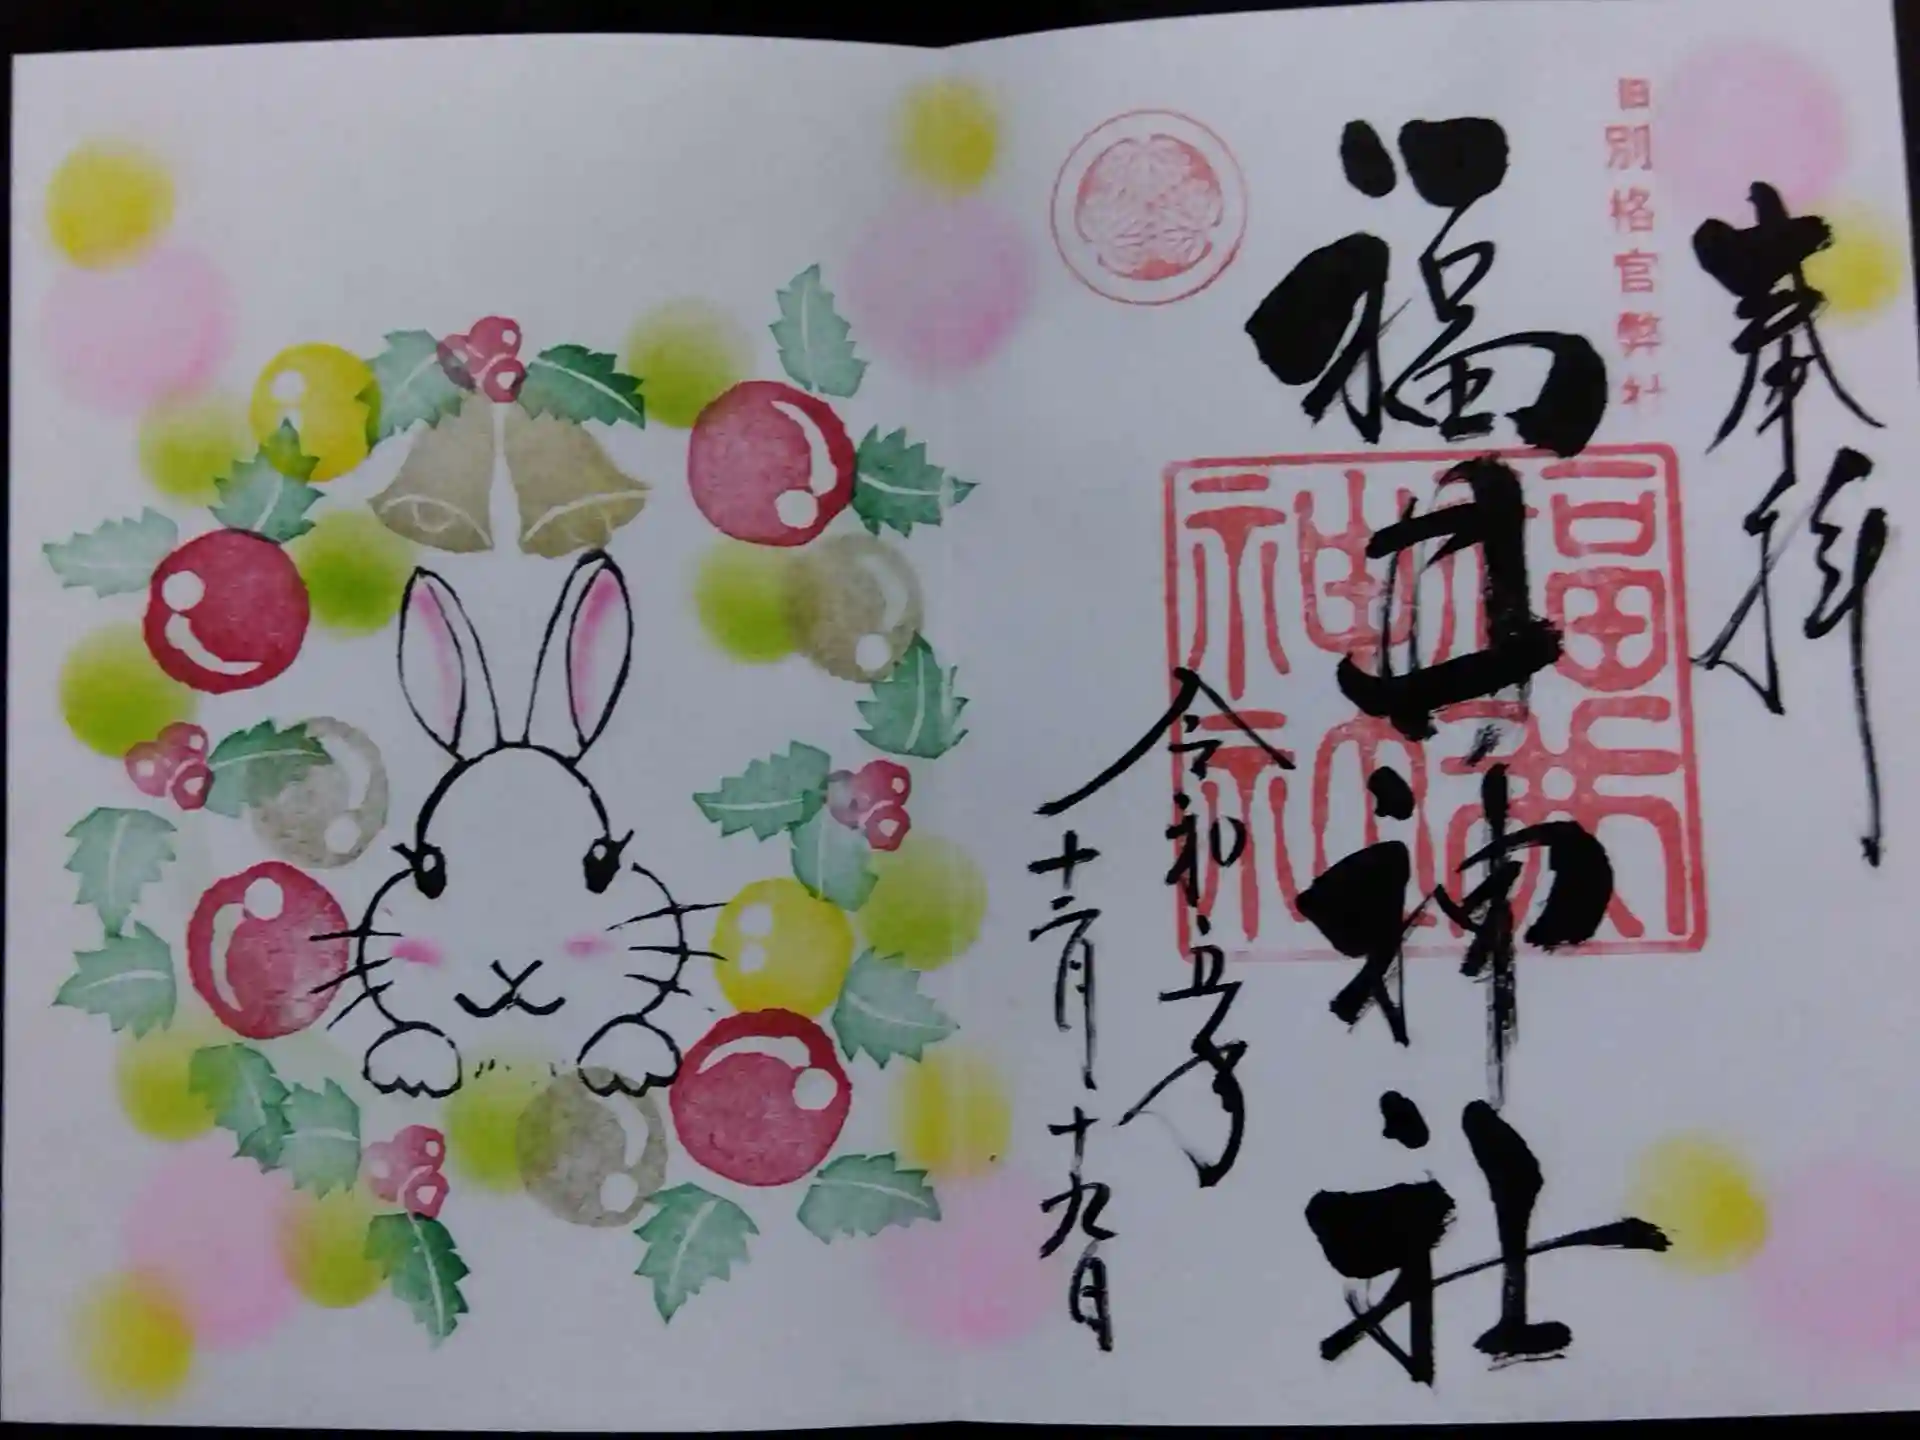 奉拝
旧別格官幣社
福井神社
福井神社
令和五年
十二月十九日